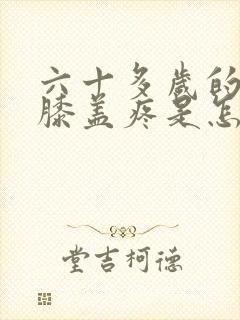 六十多歲的
膝蓋疼是怎
堂吉柯德